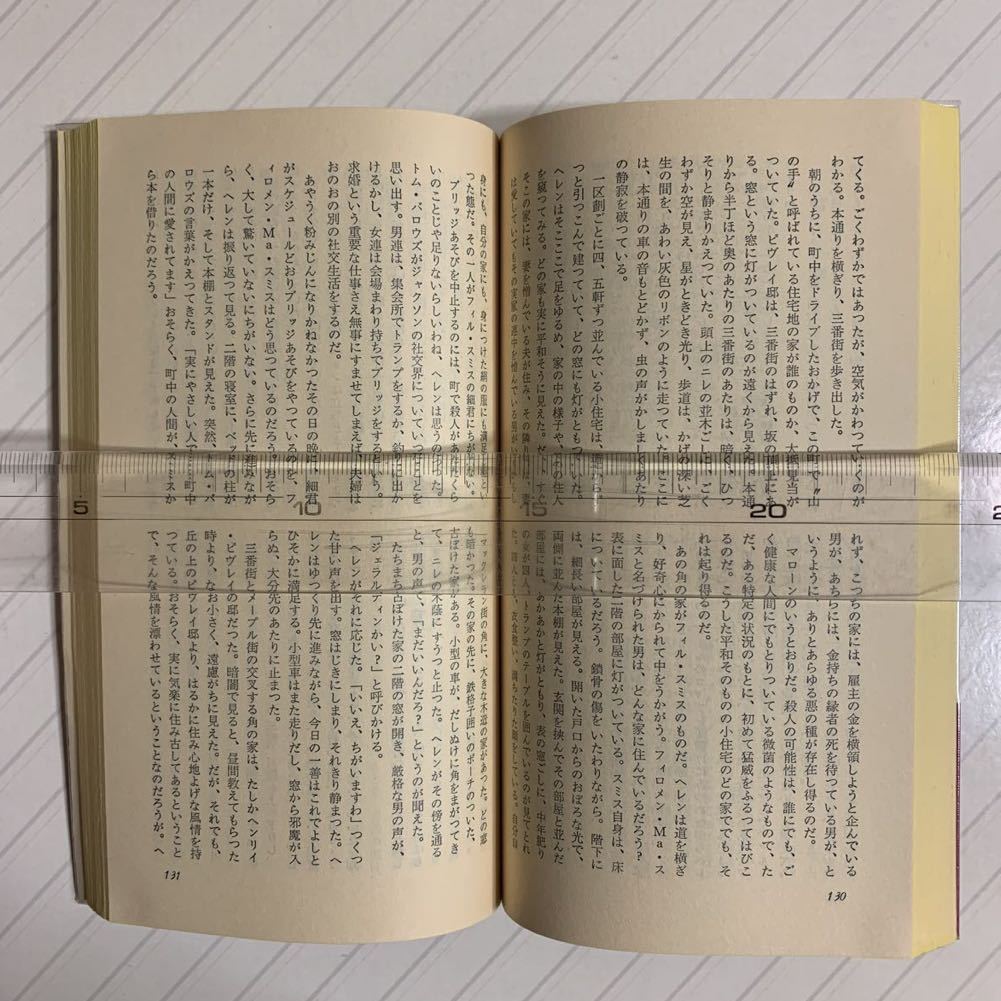 てくる。ごくわずかではあつたが、空気がかわつていくのが
わかる。本通りを横ぎり、三番街を歩き出した。
朝のうちに、町中をドライブしたおかげで、この町で〝山
の手〟と呼ばれている住宅地の家が誰のものか、大抵見当が
ついていた。ピヴレイ邸は、三番街のはずれ、坂の頂上にあ
る。窓という窓に灯がついているのが遠くから見えた。本通
りから半丁ほど奥のあたりの三番街のあたりは、暗く、ひつ
そりと静まりかえつていた。頭上のニレの並木ごしに、ごく
わずか空が見え、星がときどき光り、歩道は、かげの深い芝
生の間を、あわい灰色のリボンのように走つていた。ここに
は、本通りの車の音もとどかず、虫の声がかしましくあたり
の静寂を破つている。
一区劃ごとに四、五軒ずつ並んでいる小住宅は、道から
つと引つこんで建つていて、どの窓にも灯がともつていた。
ヘレンはそこここで足をゆるめ、家の中の様子や、その住人
を窺つてみる。どの家も実に平和そうに見えた。だが、すぐ
そこの家には、妻を憎んでいる夫が住み、その隣りは、妻
は愛していてもその実家の連中を憎んでいる男が
れず、こつちの家には、雇主の金を横領しようと企んでいる
男が、あちらには、金持ちの縁者の死を待つている男が、と
いうように、ありとあらゆる悪の種が存在し得るのだ。
マローンのいうとおりだ。殺人の可能性は、誰にでも、ご
く健康な人間にでもとりついている微菌のようなもので、た
だ、ある特定の状況のもとに、初めて猛威をふるつてはびこ
るのだ。こうした平和そのものの小住宅のどの家ででも、そ
れは起り得るのだ。
あの角の家がフィル・スミスのものだ。ヘレンは道を横ぎ
り、好奇心にかられて中をうかがう。フィロメン・Ma・ス
ミスと名づけられた男は、どんな家に住んでいるだろう？
表に面した二階の部屋に灯がついている。スミス自身は、床
についているだろう。鎖骨の傷をいたわりながら。階下に
は、細長い部屋が見える。開いた戸口からのおぼろな光で、
両側に並んだ本棚が見えた。玄関を挟んでその部屋と並んだ
部屋には、あかあかと灯がともり、表の窓ごしに、中年肥り
の女が四人、トランプのテーブルを囲んでいるのが見てとれ
た。四人とも、衣食整い、満ちたりた顔をしている。自分自
130
身にも、自分の家にも、身につけた絹の服にも満足し
つた態だ。その一人がフィル・スミスの細君にちがいない。
ブリッジあそびを中止するのには、町で殺人があつたくら
いのことじや足りないらしいわね、ヘレンは思うのだつた。
トム・バロウズがジャクソンの社交界についていつたことを
思い出す。男連は、集会所でトランプをするか、釣りに出か
けるかし、女連は会場まわり持ちでブリッジをするという。
求婚という重要な仕事さえ無事にすませてしまえば、夫婦は
おのおの別の社交生活をするのだ。
あやうく粉みじんになりかねなかつたその日の晩に、細君
がスケジュールどおりブリッジあそびをやつているのを、フ
ィロメン・Ma・スミスはどう思つているのだろう？おそら
く、大して驚いていないにちがいない。さらに先に進みなが
ら、ヘレンは振り返つて見る。二階の寝室に、ベッドの柱が
一本だけ、そして本棚とスタンドが見えた。突然、トム・バ
ロウズの言葉がかえつてきた。「実にやさしい人で……町中
の人間に愛されてます」おそらく、町中の人間が、スミスか
ら本を借りたのだろう。
マックレラン街の角に、大きな木造の家があつた。どの窓
も暗かつた。その家の先に、鉄格子囲いのポーチのついた、
古ぼけた家がある。小型の車が、だしぬけに角をまがつてき
て、ニレの木蔭にすうつと止つた。ヘレンがその傍を通る
と、男の声で、「まだいいんだろ？」というのが聞えた。
たちまち古ぼけた家の二階の窓が開き、厳格な男の声が、
「ジェラルディンかい？」と呼びかける。
ヘレンがそれに応じた。「いいえ、ちがいますわ」つくつ
た甘い声を出す。窓はじきにしまり、それきり静まつた。ヘ
レンはゆつくり先に進みながら、今日の一善はこれでよしと
ひそかに満足する。小型車はまた走りだし、窓から邪魔が入
らぬ、大分先のあたりに止まつた。
三番街とメープル街の交叉する角の家は、たしかヘンリイ
・ピヴレイの邸だつた。暗闇で見ると、昼間教えてもらつた
時より、なお小さく、遠慮がちに見えた。だが、それでも、
丘の上のピヴレイ邸より、はるかに住み心地よげな風情を持
つている。おそらく、実に気楽に住み古してあるということ
で、そんな風情を漂わせているということなのだろうが。ヘ
131
5
10
15
20
2